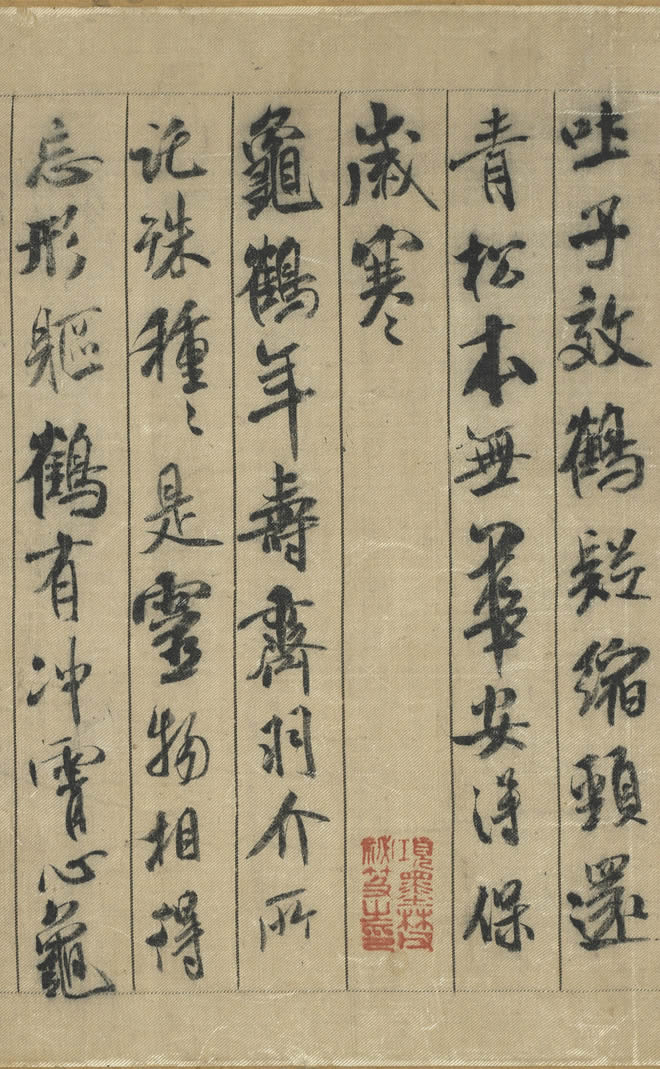 吐子效鶴疑縮頸還
青松本無華安得保
歲寒〻
龜鶴年壽齊羽介所
託殊種〻是靈物相得
忘形軀鶴有冲霄心龜
項墨林父
祕笈之印